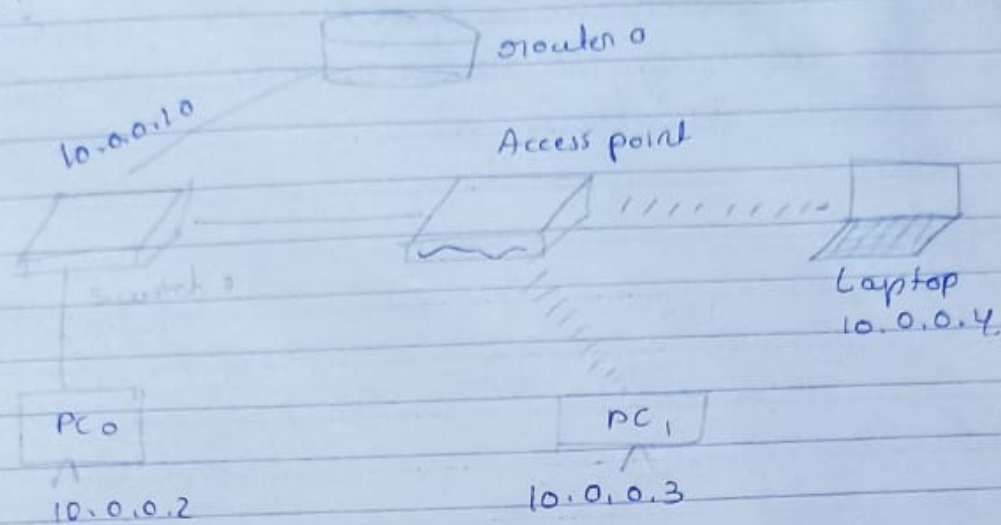 router 0
10.0.0.10
Access point
Switch 0
Laptop
10.0.0.4
PC0
PC1
10.0.0.2
10.0.0.3